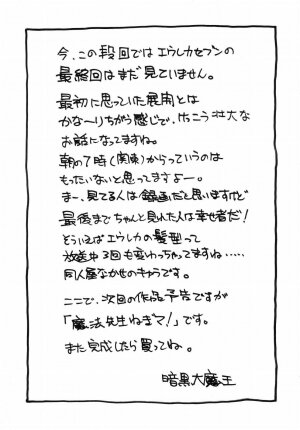 今、この段回ではエウレカセブンの
最終回はまだ見ていません。
最初に思っていた展開とは
かな〜りちがう感じで、けっこう壮大な
お話になってますね。
朝の7時(関東)からっていうのは
もったいないと思ってますよー。
まー、見てる人は録画だと思いますけど
最後までちゃんと見れた人は幸せ者だ!
そういえばエウレカの髪型って
放送中3回も変わっちゃってますね・・・・・
同人屋なかせのキャラです。
ここで、次回の作品予告ですが
「魔法先生ねぎマ!」です。
また完成したら買ってね。
暗黒大魔王